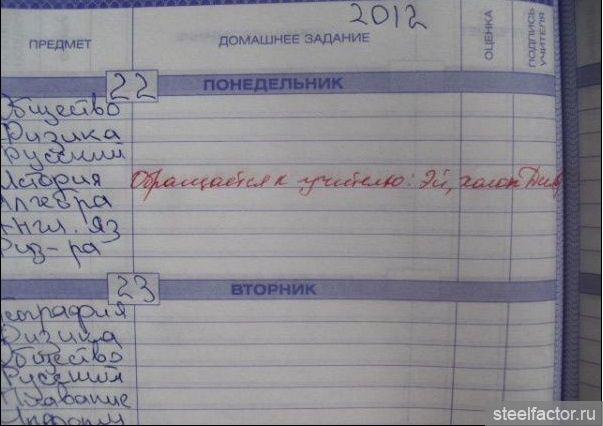 2012
ПРЕДМЕТ ДОМАШНЕЕ ЗАДАНИЕ ОЦЕНКА ПОДПИСЬ УЧИТЕЛЯ
22 ПОНЕДЕЛЬНИК
Общество
Физика
Русский
История Обращается к учителю: Эй, холоп
Алгебра
Англ. яз
Физ-ра
23 ВТОРНИК
География
Физика
Общество
Русский
Плавание
Информ
steelfactor.ru